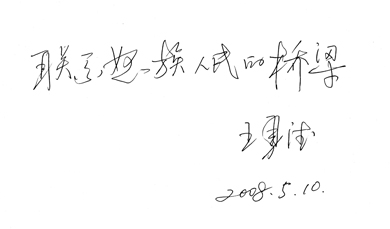 联系 族人民的桥梁
王
2008.5.10.